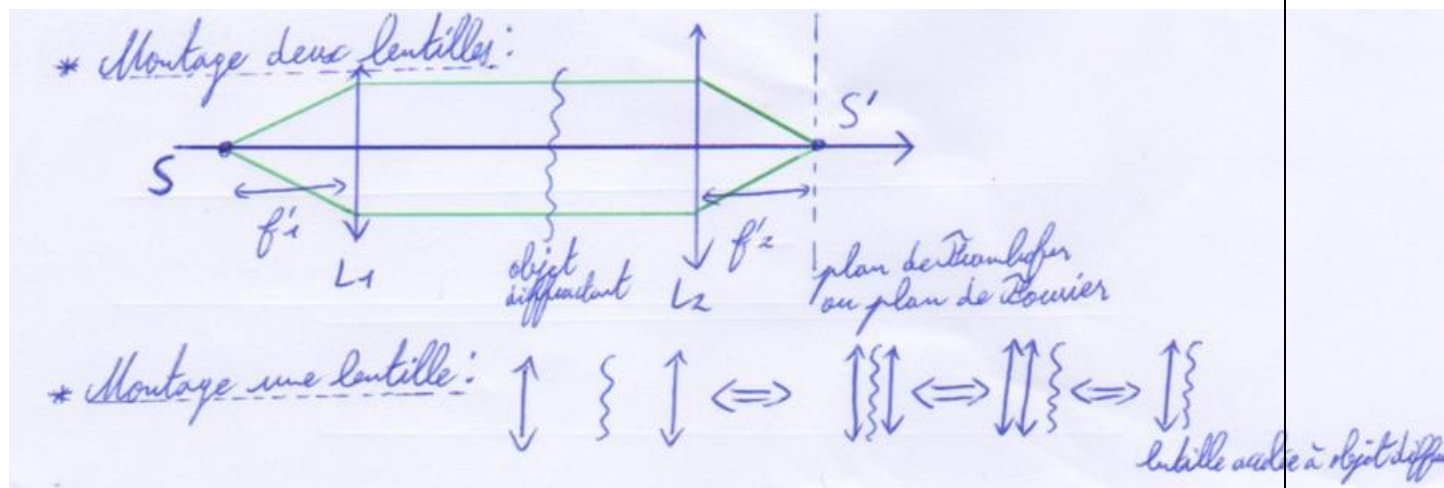 * Montage deux lentilles:
S
S'
f'1
f'2
L1
objet
diffractant
L2
plan de Fraunhofer
ou plan de Fourier
* Montage une lentille:
⇔ ⇔ ⇔
lentille accolée à objet